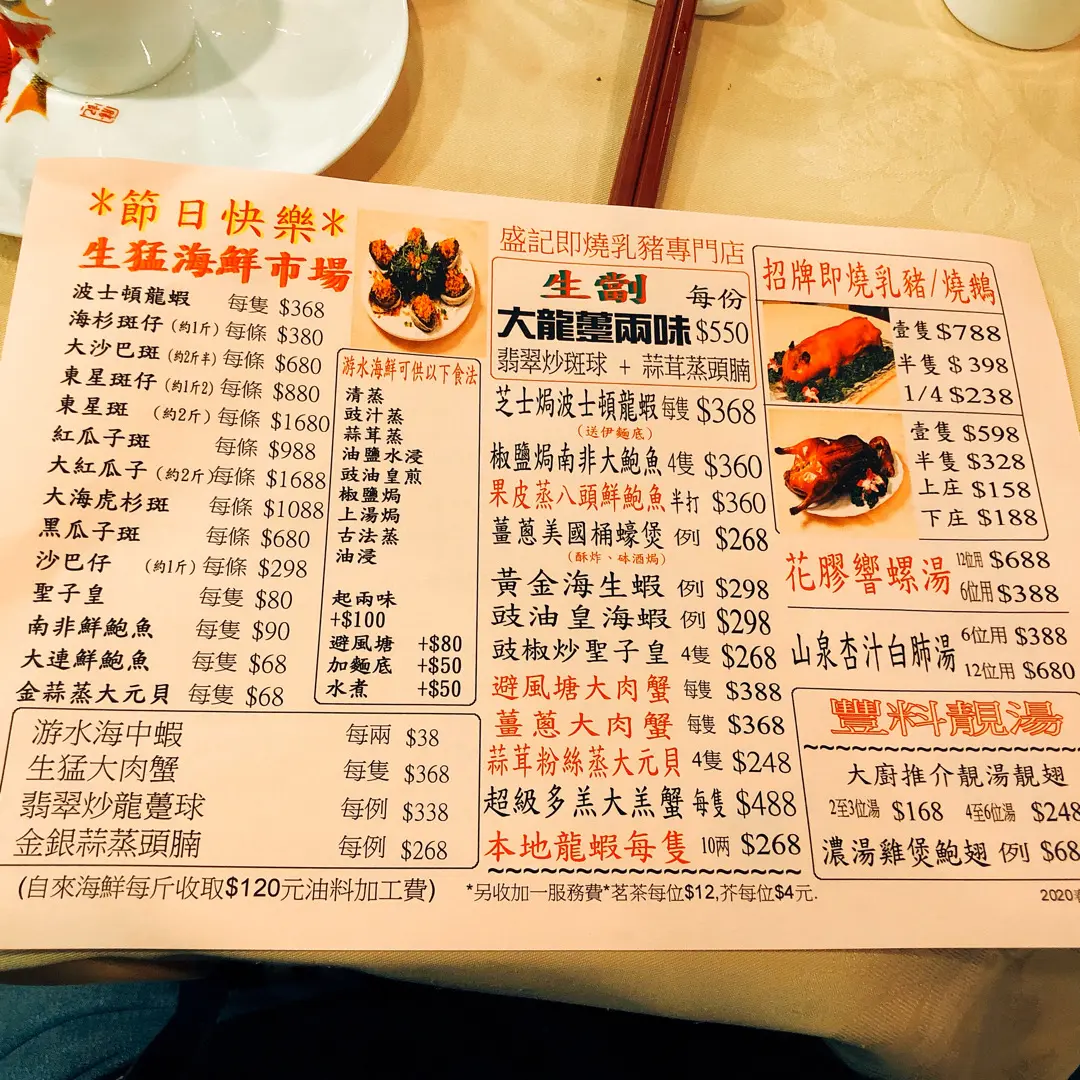 *節日快樂*
生猛海鮮市場
波士頓龍蝦 每隻 $368
海杉斑仔(約1斤) 每條 $380
大沙巴斑 (約2斤半) 每條 $680
東星斑仔 (約1斤2) 每條 $880
東星斑 (約2斤) 每條 $1680
紅瓜子斑 每條 $988
大紅瓜子 (約2斤)每條 $1688
大海虎杉斑 每條 $1088
黑瓜子斑 每條 $680
沙巴仔 (約1斤) 每條 $298
聖子皇 每隻 $80
南非鮮鮑魚 每隻 $90
大連鮮鮑魚 每隻 $68
金蒜蒸大元貝 每隻 $68
游水海鮮可供以下食法
清蒸
豉汁蒸
蒜茸蒸
油鹽水浸
豉油皇煎
椒鹽焗
上湯焗
古法蒸
油浸
起兩味
+$100
避風塘 +$80
加麵底 +$50
水煮 +$50
游水海中蝦 每兩 $38
生猛大肉蟹 每隻 $368
翡翠炒龍躉球 每例 $338
金銀蒜蒸頭腩 每例 $268
(自來海鮮每斤收取$120元油料加工費)
盛記即燒乳豬專門店
生劏 每份
大龍躉兩味 $550
翡翠炒斑球 + 蒜茸蒸頭腩
芝士焗波士頓龍蝦 每隻 $368
(送伊麵底)
椒鹽焗南非大鮑魚 4隻 $360
果皮蒸八頭鮮鮑魚 半打 $360
薑蔥美國桶蠔煲 例 $268
(酥炸、砵酒焗)
黃金海生蝦 例 $298
豉油皇海蝦 例 $298
豉椒炒聖子皇 4隻 $268
避風塘大肉蟹 每隻 $388
薑蔥大肉蟹 每隻 $368
蒜茸粉絲蒸大元貝 4隻 $248
超級多羔大羔蟹 每隻 $488
本地龍蝦每隻 10两 $268
*另收加一服務費*茗茶每位$12,芥每位$4元.
招牌即燒乳豬/燒鵝
壹隻 $788
半隻 $398
1/4 $238
壹隻 $598
半隻 $328
上庄 $158
下庄 $188
花膠響螺湯 12位用 $688
6位用 $388
山泉杏汁白肺湯 6位用 $388
12位用 $680
豐料靚湯
大廚推介靚湯靚翅
2至3位湯 $168 4至6位湯 $248
濃湯雞煲鮑翅 例 $68
2020春